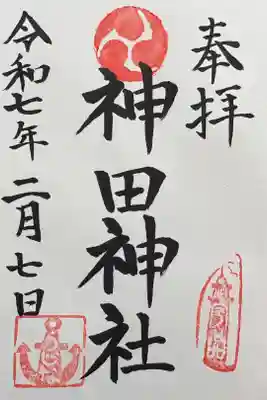 奉拝
神田神社
令和七年 二月七日